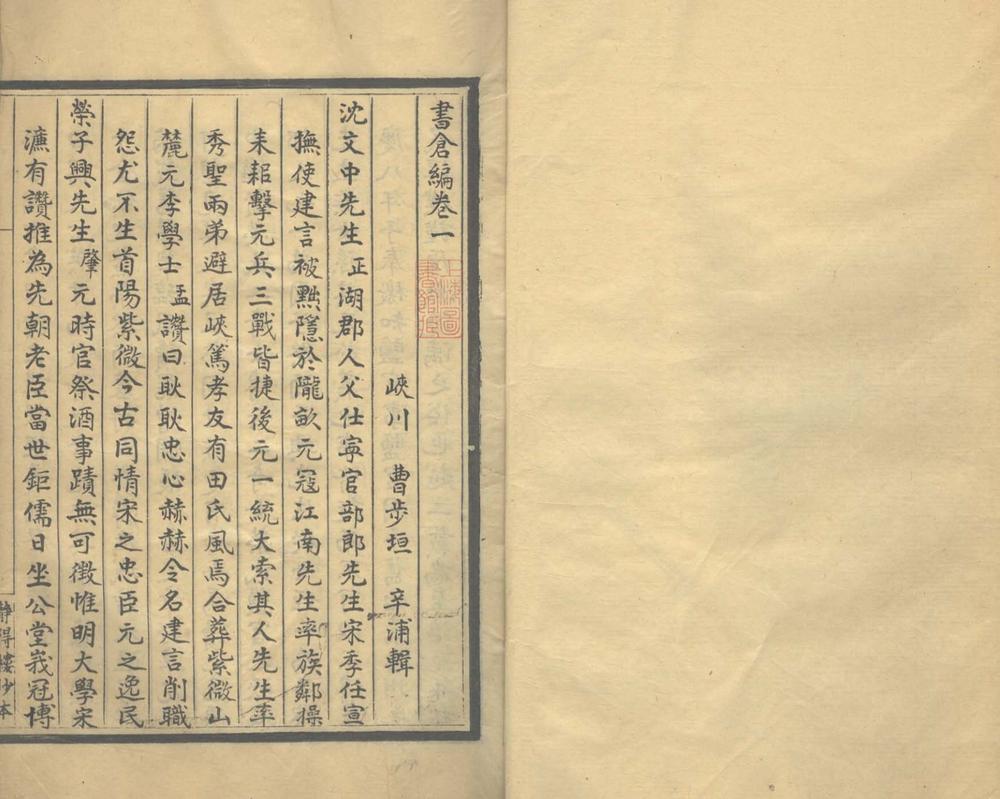 書倉編卷一
峽川 曹步垣 辛浦輯
沈文中先生正湖郡人父仕寧官部郎先生宋季任宣
撫使建言被黜隱於隴畝元寇江南先生率族鄰操
耒耜擊元兵三戰皆捷後元一統大索其人先生率
秀聖兩弟避居峽篤孝友有田氏風焉合葬紫微山
麓元李學士孟讚曰耿耿忠心赫赫令名建言削職
怨尤不生首陽紫微今古同情宋之忠臣元之逸民
榮子興先生肇元時官祭酒事蹟無可徵惟明大學宋
濂有讚推為先朝老臣當世鉅儒日坐公堂峩冠博
靜得樓抄本
上海圖書館藏